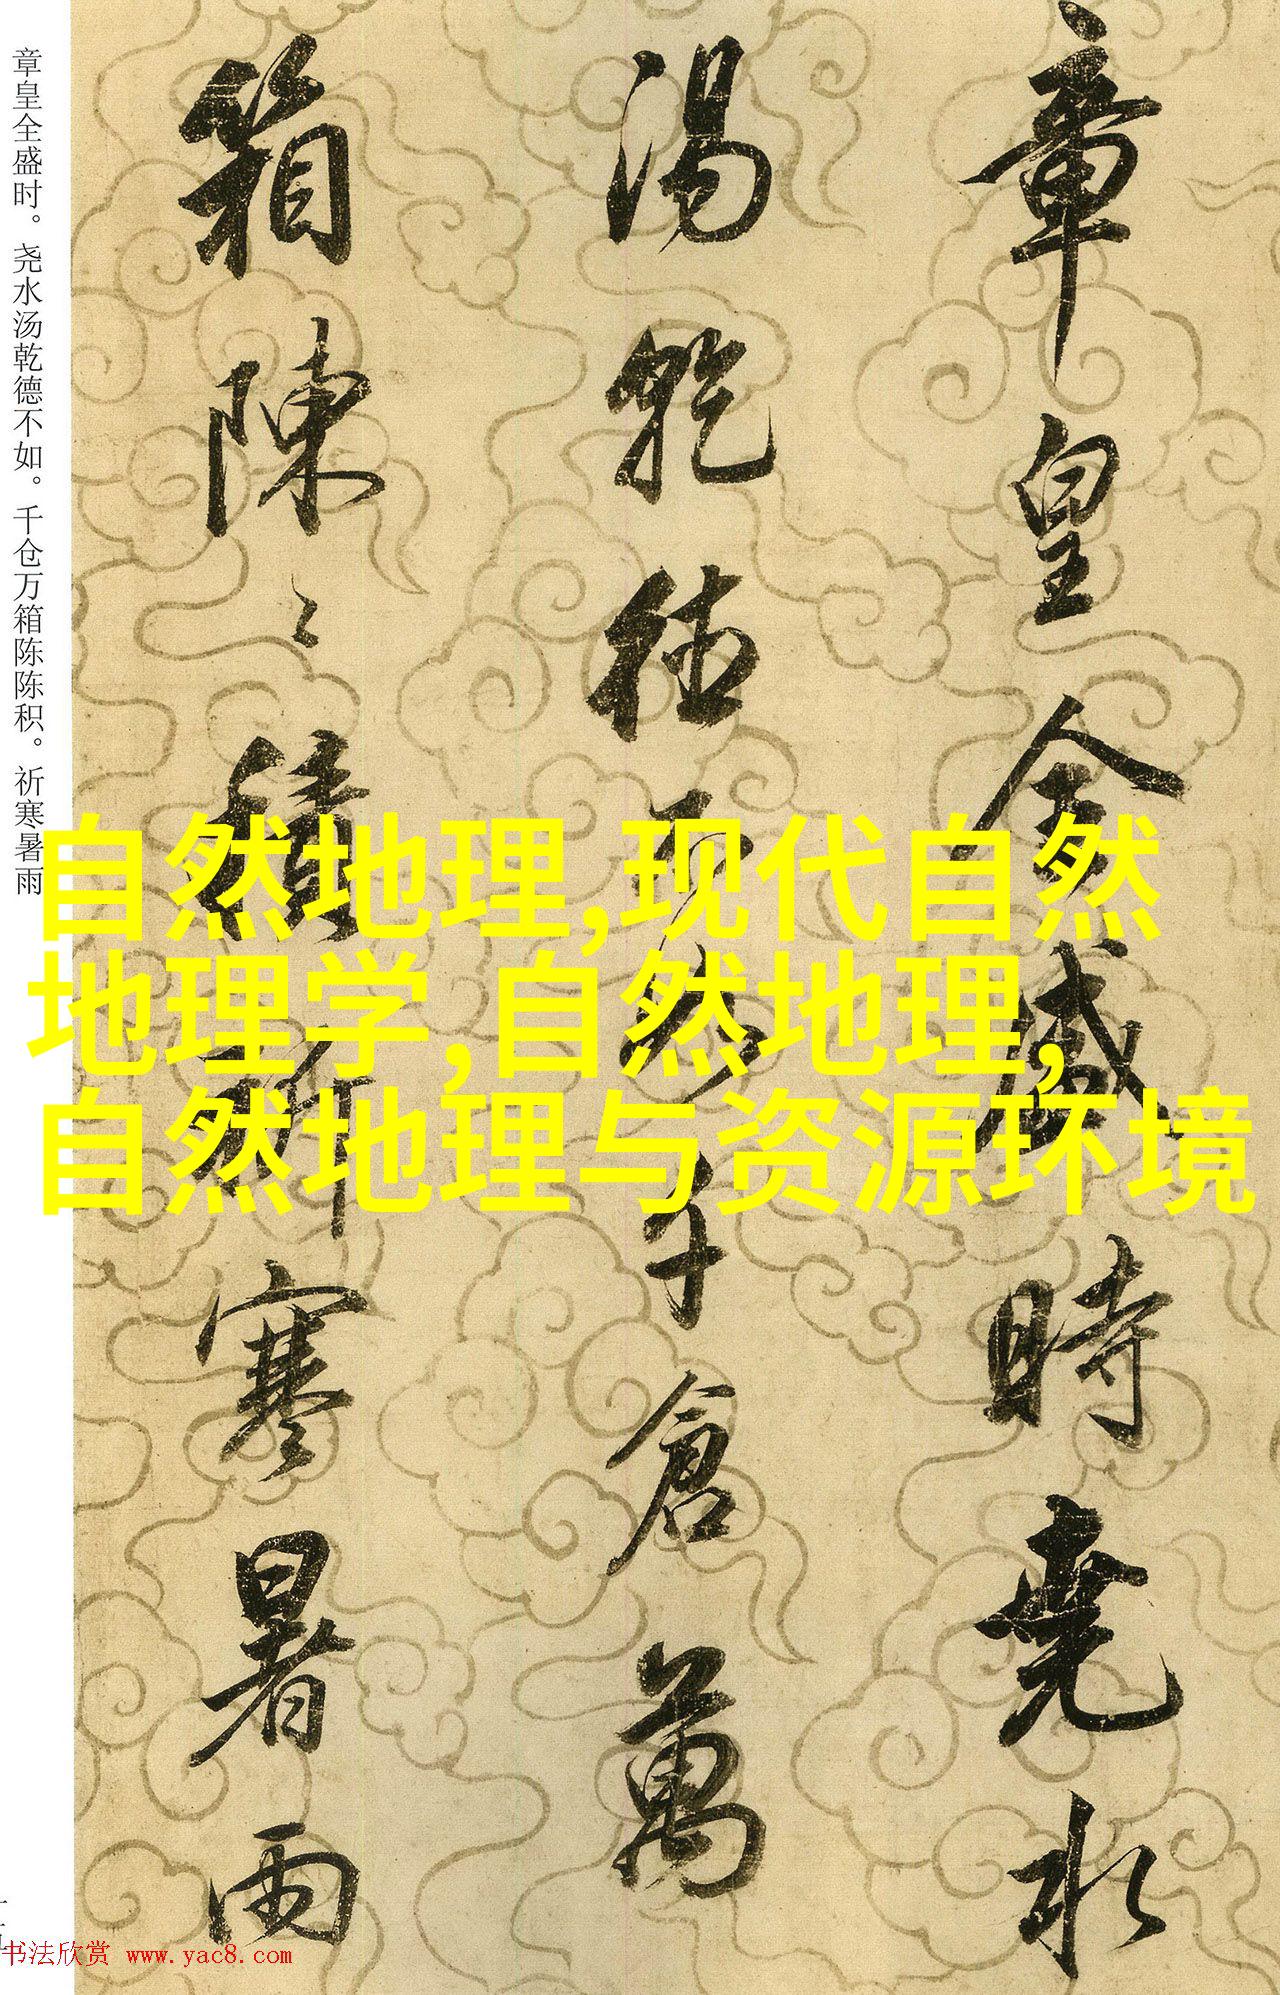 章皇全盛時堯水
湯乾德不如千倉萬
箱陳〻積祈寒暑雨
章皇全盛时。尧水汤乾德不如。千仓万箱陈陈积。祈寒暑雨
自然地理,现代自然
地理学,自然地理,
自然地理与资源环境
书法欣赏 www.yac8.com